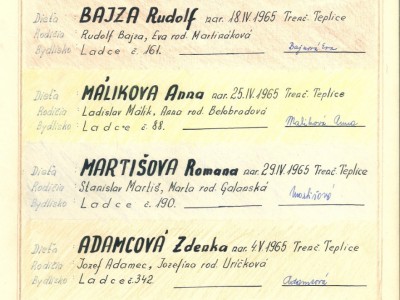 Dieťa BAJZA Rudolf nar. 18.IV.1965 Trenč. Teplice
Rodičia Rudolf Bajza, Eva rod. Martináková
Bydlisko Ladce č. 161. Bajzová Eva
Dieťa MÁLIKOVA Anna nar. 25.IV.1965 Trenč. Teplice
Rodičia Ladislav Málik, Anna rod. Belobradová
Bydlisko Ladce č. 88. Maliková Anna
Dieťa MARTIŠOVA Romana nar. 29.IV.1965 Trenč. Teplice
Rodičia Stanislav Martiš, Marta rod. Galanská
Bydlisko Ladce č. 190. Martišová
Dieťa ADAMCOVÁ Zdenka nar. 4.V.1965 Trenč. Teplice
Rodičia Jozef Adamec, Jozefína rod. Uríčková
Bydlisko Ladce č. 342. Adamcová